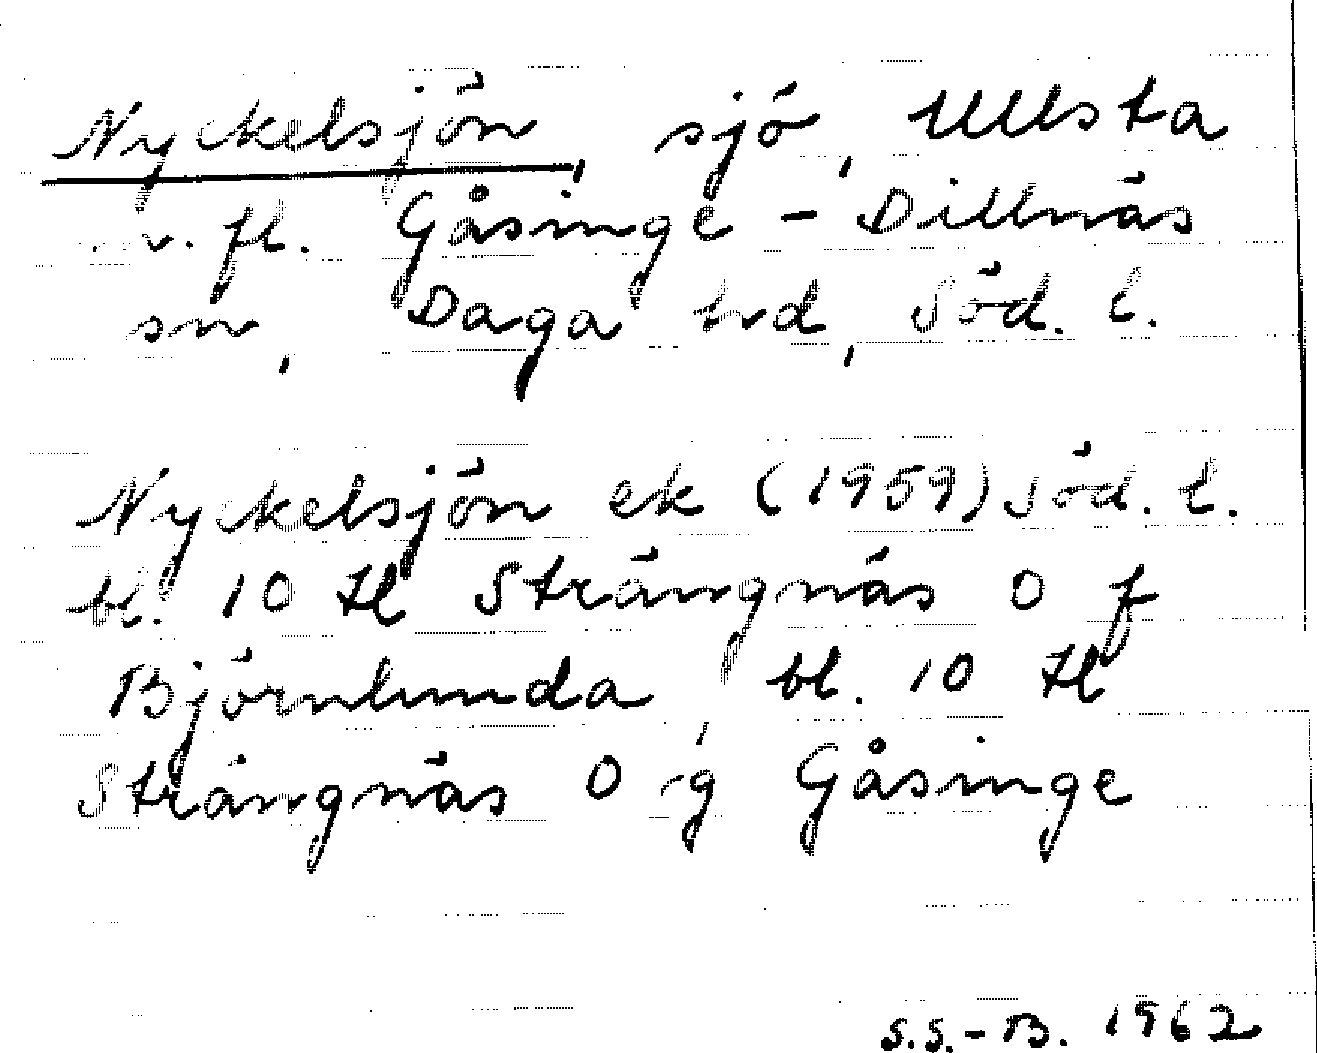 Nyckelsjön, sjö, Ullsta
v. fl. Gåsinge - Dillnäs
sn, Daga hd, Söd. l.
Nyckelsjön ek (1959) Söd. l.
bl. 10 tl Strängnäs O f
Björnlunda, bl. 10 tl
Strängnäs O g Gåsinge
S.S.-B. 1962